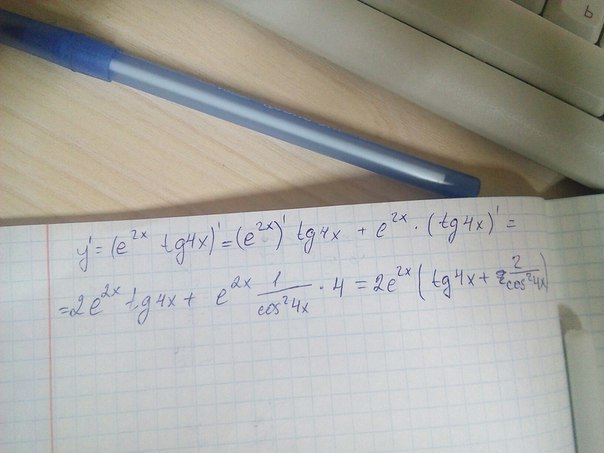 y' = (e^{2x} tg4x)' = (e^{2x})' tg4x + e^{2x} · (tg4x)' =
= 2e^{2x} tg4x + e^{2x} \frac{1}{cos^2 4x} · 4 = 2e^{2x} (tg4x + \frac{2}{cos^2 4x})